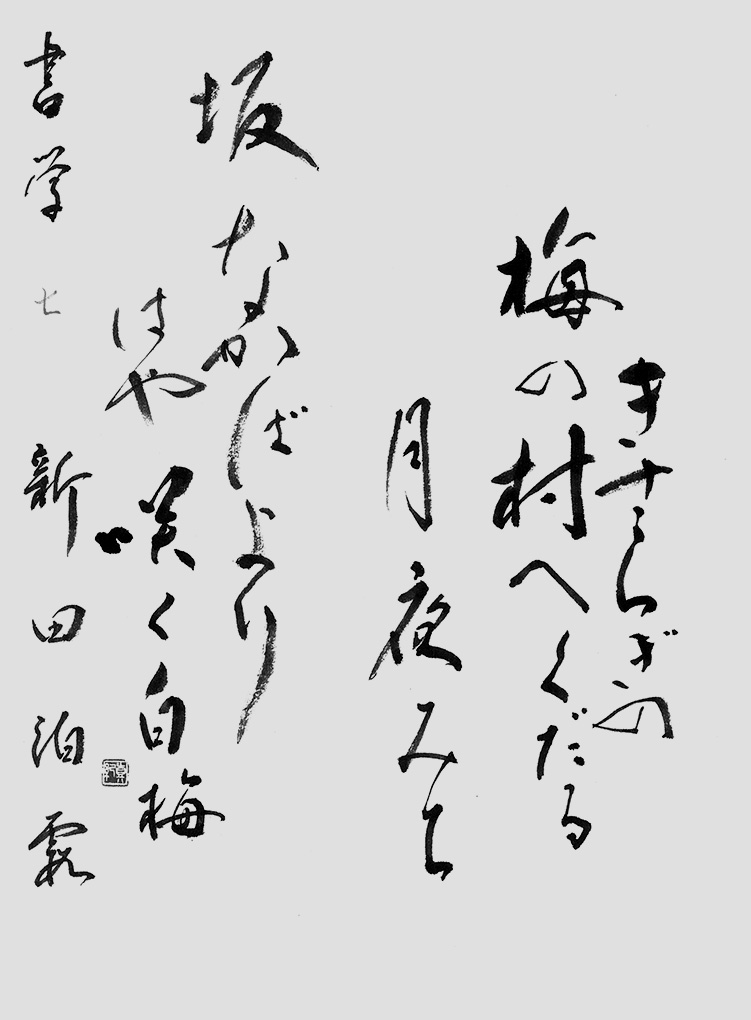 きさらぎの
梅の村へくだる
月夜みち
坂なかばより
はや咲く白梅
書学 七 新田泊霞